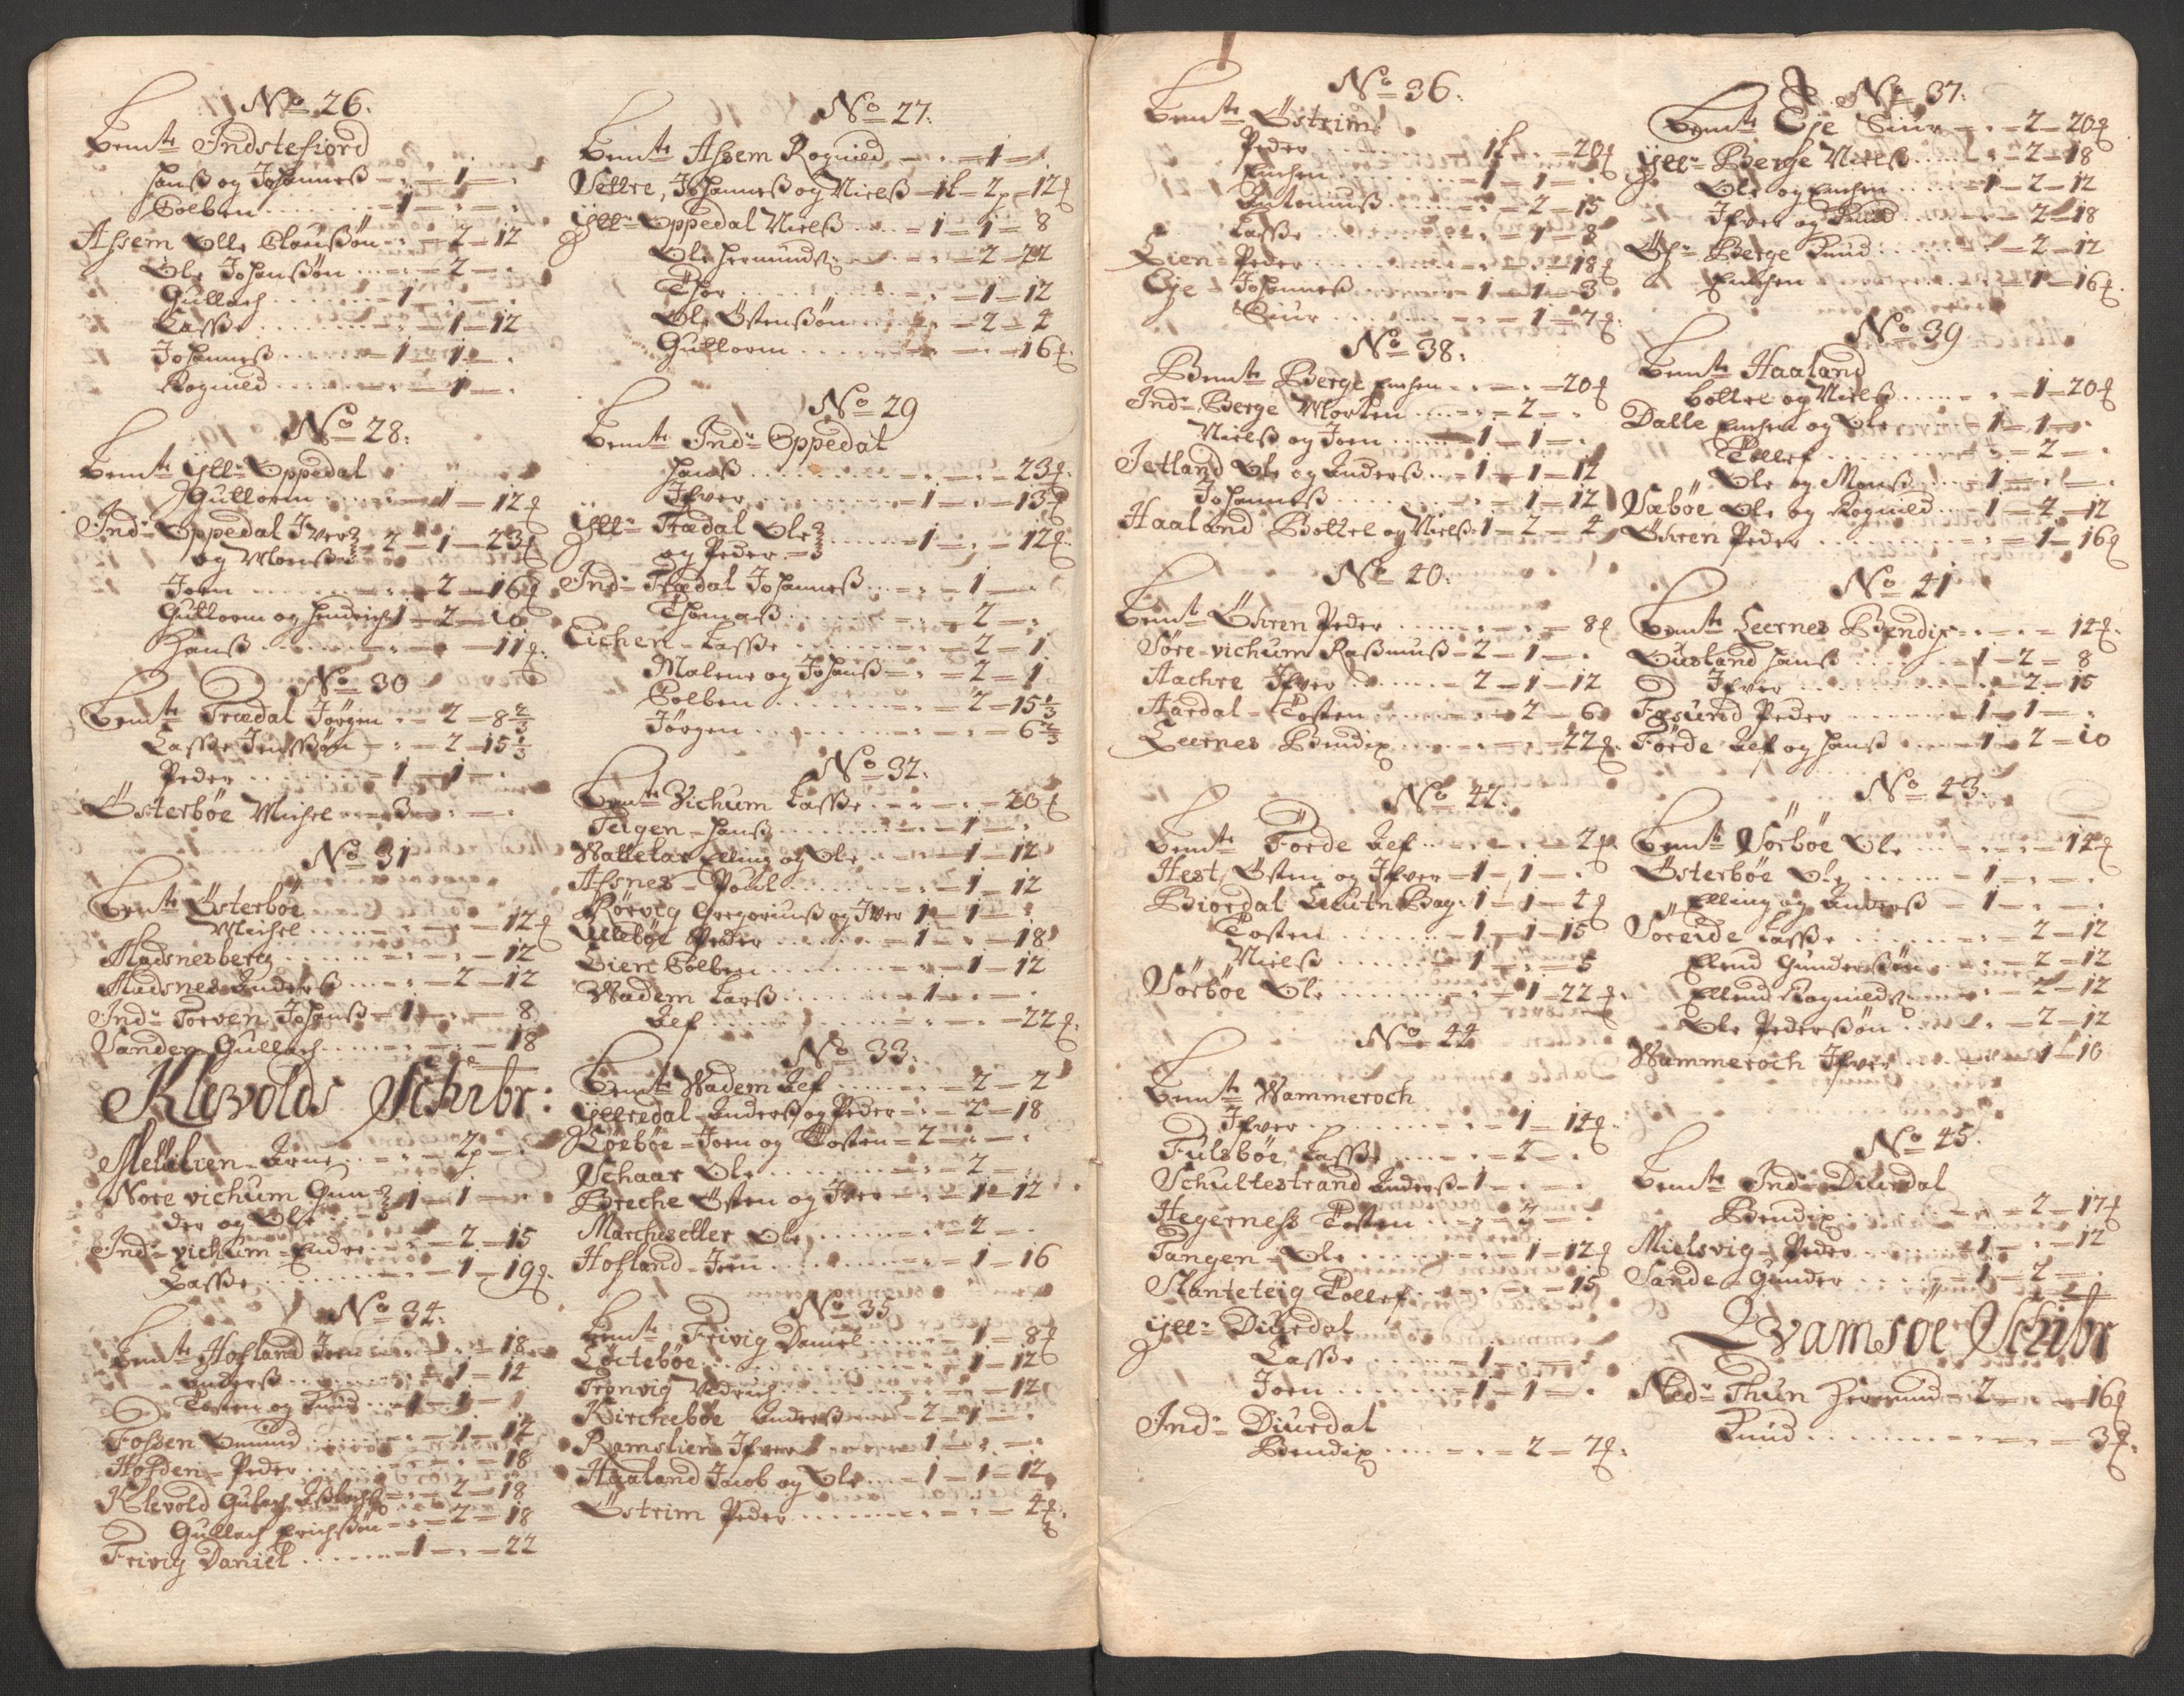 No 26.
Bemte Indstefiord
Hanß og Johanneß - . - 1 - .
Colben - 1 - . - .
Assem Olle Claußøn - . - 2 - 12
Ole Johanßøn - . - 2 - .
Gullach - 1 - . - .
Lasse - . - 1 - 12
Johanneß - 1 - 1 - .
Rognild - . - 1 - .
No 28.
Bemte Ytt: Oppedal
Guttorm - 1 - 12
Ind: Oppedal Iver - 2 - 1 - 23
og Monß
Joen - . - 2 - 16
Guttorm og Hendrich 1 - 2 - 10
Hanß - . - . - 11
No 30
Bemte Trædal Jørgen - . - 2 - 8 2/3
Lasse Jenßøn - . - 2 - 15 1/3
Peder - 1 - 1 - .
Österböe Michel - . - 3 - .
No 31
Bemte Österböe
Michel - . - . - 12
Hadsnesberg - . - . - 12
Hadsnes Anderß - . - 2 - 12
Ind: Torven Johanß - 1 - . - 8
Sanden Gullach - . - . - 18
Klevolds Schibr:
Mellilien Arne - . - 2 - .
Nore vichum Gun- 1 - 1 - .
der og Ole
Ind: vichum Endre - . - 2 - 15
Lasse - . - 1 - 19
No 34.
Bemte Hofland Joen - . - . - 18
Anderß - . - 1 - 14
Tosten og Knud - 1 - 1 - .
Fossen Omund - . - 1 - 12
Hofden Peder - . - . - 18
Klevold Gulach - . - 2 - 18
Gullach Erichßøn - . - 2 - 18
Frivig Daniel - 1 - . - 22
No 27.
Bemte Assem Rognild - . - 1 - .
Settre, Johanneß og Nielß - 1 - 2 - 12
Ytt: Oppedal Nielß - 1 - 1 - 8
Ole Hermunds: - . - 2 - 22
Thor - . - 1 - 12
Ole Östenßøn - . - 2 - 4
Guttorm - . - . - 16
No 29
Bemte Ind: Oppedal
Hanß - . - . - 23
Ifver - 1 - . - 13
Ytt: Trædal Ole - 1 - . - 12
og Peder
Ind: Trædal Johanneß - . - 1 - .
Thomaß - . - 2 - .
Eichen - Lasse - . - 2 - 1
Malene og Johanß - . - 2 - 1
Colben - . - 2 - 15 1/3
Jørgen - . - . - 6 2/3
No 32.
Bemte Vichum Lasse - . - . - 20
Teigen - Hanß - . - 1 - .
Wattelar Elling og Ole - . - 1 - 12
Assnes - Poul - . - 1 - 12
Rörvig Gregoriuß og Iver 1 - 1 - .
Yttebøe Peder - 1 - . - 18
Lien Colben - . - 1 - 12
Wadem Larß - 1 - . - .
Lef - . - . - 22
No 33.
Bemte Wadem Lef - . - 2 - 2
Yttredal Anderß og Peder - . - 2 - 18
Köebøe - Joen og Tosten - 2 - . - .
Schaar Ole - . - 2 - .
Breche Östen og Iver - . - 1 - 12
Marchesetter Ole - . - 2 - .
Hofland - Joen - . - 1 - 16
No 35
Bemte Frivig Daniel - . - 1 - 8
Löctebøe - . - 1 - 12
Tronvig - . - . - 12
Kirchebøe Anderß - 2 - 1 - .
Ramslien Ifver - 1 - . - .
Haaland Jacob og Ole - 1 - 1 - 12
Östrim Peder - . - . - 4
No 36.
Bemte Östrim
Peder - 1 - . - 20
Enchen - 1 - 1 - .
Antoniuß - . - 2 - 15
Lasse - . - 1 - 8
Lien - Peder - . - . - 18
Eje - Johanneß - 1 - 1 - 3
Siur - . - 1 - 7
No 38.
Bemte Berge Enchen - . - . - 20
Ind: Berge Morten - . - 2 - .
Nielß og Joen - 1 - 1 - .
Jetland Ole og Anderß - 1 - 1 - 12
Johanneß - . - 1 - 12
Haaland Bottel og Nielß 1 - 2 - 4
No 40.
Bemte Öhren Peder - . - . - 8
Søre-vichum Raßmuß - 2 - 1 - .
Aachre Ifver - 2 - 1 - 12
Aardal - Tosten - . - 2 - 6
Leernes Bendix - . - . - 22
No 42.
Bemte Førde Lef - . - . - 2
Hest, Östen og Ifver - 1 - 1 - .
Biordal Leutn Bag: 1 - 1 - 4
Tosten - 1 - 1 - 15
Nielß - 1 - . - 5
Sörböe Ole - . - 1 - 22
No 44
Bemte Wammeroch
Ifver - . - 1 - 14
Fulsböe Lasse - . - 2 - .
Schultestrand Anderß - 1 - . - .
Hegerness Tosten - . - 2 - .
Tangen - Ole - . - 1 - 12
Slanteteig Tollef - . - . - 15
Ytt: Diurdal
Lasse - 1 - . - .
Joen - 1 - 1 - .
Ind: Diurdal
Bendix - . - 2 - 7
No 37.
Bemte Eje Siur - . - 2 - 20
Ytt: Berge Nielß - . - 2 - 18
Ole og Enchen - 1 - 2 - 12
Ifver og Knud - . - 2 - 18
Öf: Berge Knud - . - 2 - 12
Enchen - . - 1 - 16
No 39
Bemte Haaland
Bottel og Nielß - . - 1 - 20
Dalle Enchen og Ole - 1 - 1 - .
Tollef - . - 2 - .
Ole og Monß - 1 - . - .
Næböe Ole og Rognild - 1 - 2 - 12
Öhren Peder - . - 1 - 16
No 41
Bemte Leernes Bendix - . - . - 14
Ousland Hanß - 1 - 2 - 8
Ifver - . - 2 - 15
Egsund Peder - 1 - 1 - .
Førde Lef og Hanß - 1 - 2 - 10
No 43.
Bemte Sörböe Ole - . - . - 14
Österböe Ole - 1 - . - .
Elling og Anderß - 1 - . - .
Söreide Lasse - . - 2 - 12
Elend Gunderßøn - . - 2 - 12
Ellend Rognilds: - . - 2 - 12
Ole Pederßøn - . - 2 - 12
Wammeroch Ifver - . - 1 - 10
No 45.
Bemte Ind: Diurdal
Bendix - . - 2 - 17
Mielsvig - Peder - 1 - . - 12
Sande - Gunder - 1 - 2 - .
Qvamsöe Schibr
Ned: Thun Hermund - 2 - . - 16
Knud - . - . - 3